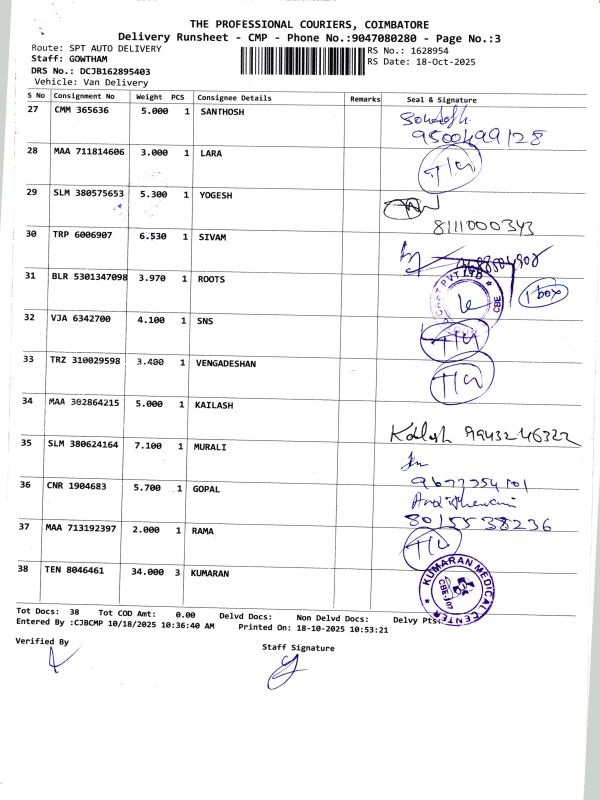 THE PROFESSIONAL COURIERS, COIMBATORE
Delivery Runsheet - CMP - Phone No.:9047080280 - Page No.:3
Route: SPT AUTO DELIVERY
RS No.: 1628954
Staff: GOWTHAM
RS Date: 18-Oct-2025
DRS No.: DCJB162895403
Vehicle: Van Delivery
S No Consignment No Weight PCS Consignee Details Remarks Seal & Signature
27 CMM 365636 5.000 1 SANTHOSH
9500499128
28 MAA 711814606 3.000 1 LARA
29 SLM 380575653 5.300 1 YOGESH
8111000343
30 TRP 6006907 6.530 1 SIVAM
31 BLR 5301347098 3.970 1 ROOTS
CBE
1 box
32 VJA 6342700 4.100 1 SNS
33 TRZ 310029598 3.400 1 VENGADESHAN
34 MAA 302864215 5.000 1 KAILASH
Kailash 9943246322
35 SLM 380624164 7.100 1 MURALI
9677354101
36 CNR 1904683 5.700 1 GOPAL
8015538236
37 MAA 713192397 2.000 1 RAMA
38 TEN 8046461 34.000 3 KUMARAN
KUMARAN MEDICAL CENTER
Tot Docs: 38 Tot COD Amt: 0.00 Delvd Docs: Non Delvd Docs: Delvy Pts:
Entered By :CJBCMP 10/18/2025 10:36:40 AM Printed On: 18-10-2025 10:53:21
Verified By
Staff Signature